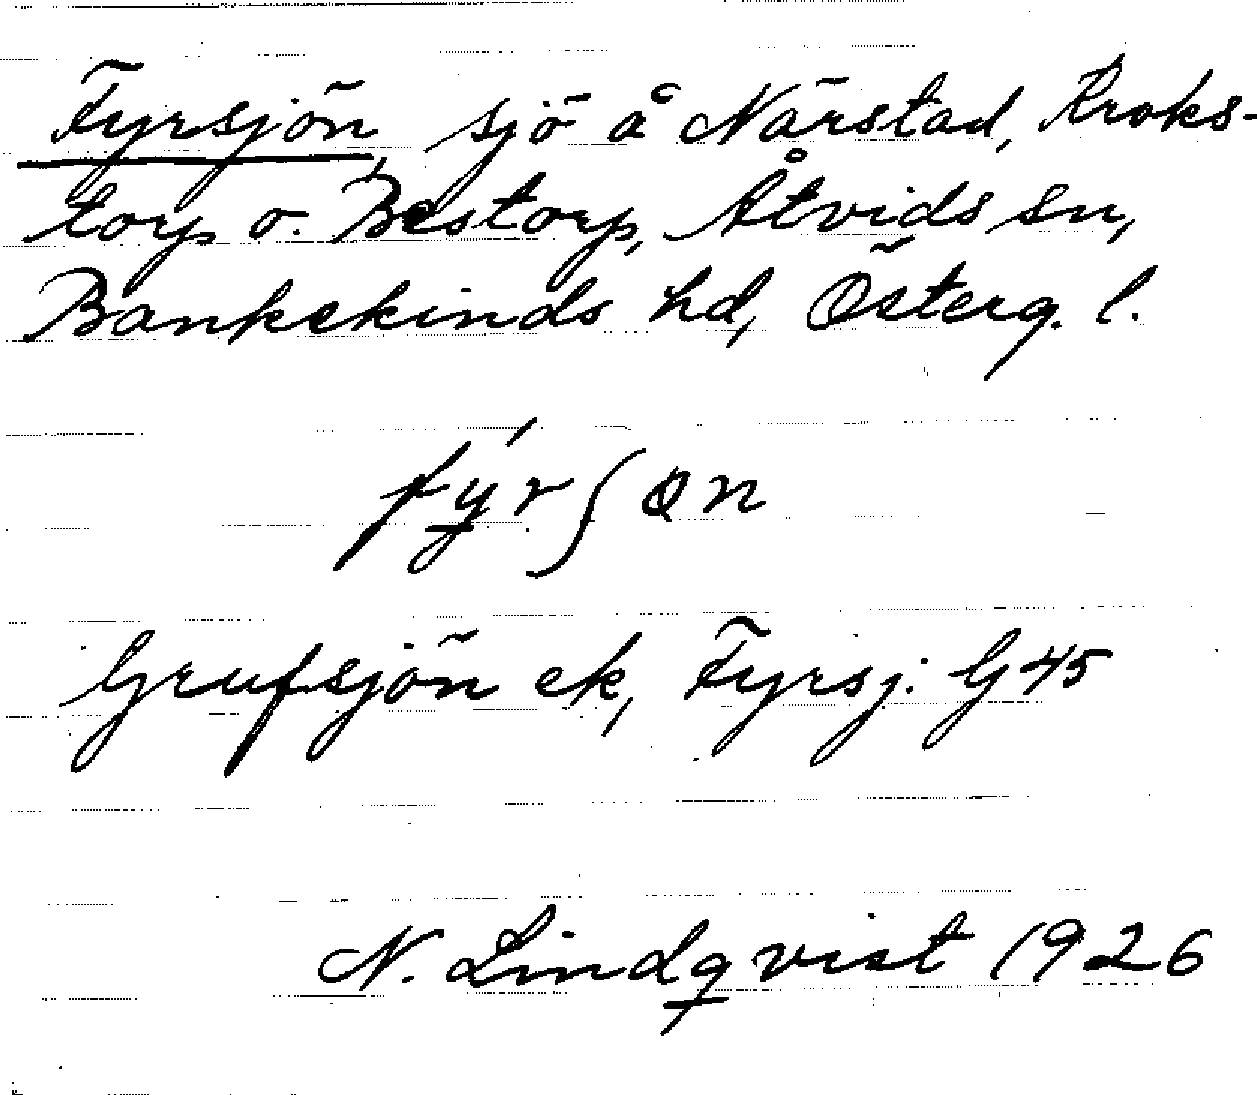 Fyrsjön, sjö å Närstad, Kroks-
torp o. Bestorp, Åtvids sn,
Bankekinds hd, Österg. l.
fýrʃøn
Grufsjön ek, Fyrsj: G45
N. Lindqvist 1926